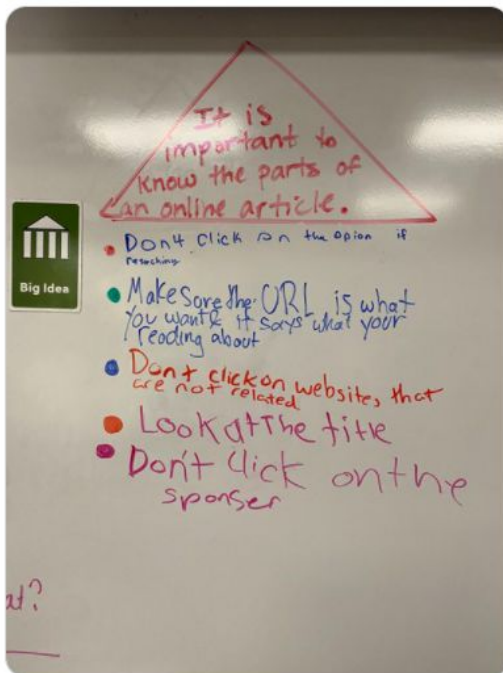 It is
important to
know the parts of
an online article.
Big Idea
Don4 click on the opion if
reaching
Make sore the URL is what
you want & it says what your
reading about
Don't click on websites, that
are not related
Look at The title
Don't Click on the
sponser
at?